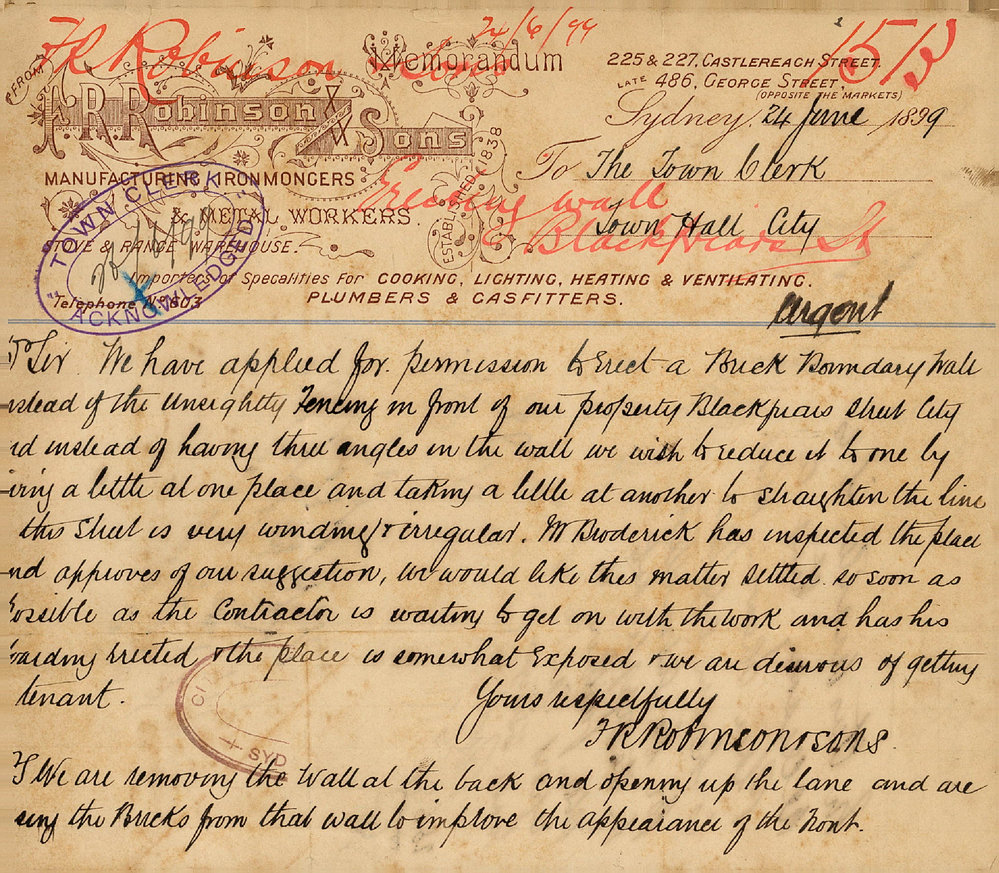 FR Robinson & Sons 24/6/99
15/3
FROM
F.R. Robinson & Sons
Memorandum
225 & 227, CASTLEREACH STREET.
LATE 486, GEORGE STREET,
(OPPOSITE THE MARKETS)
Sydney, 24 June 1899
To The Town Clerk
Town Hall City
ESTABLISHED 1838
MANUFACTURING IRONMONGERS
& METAL WORKERS.
STOVE & RANGE WAREHOUSE.
Erecting wall
Blackfriars St
TOWN CLERK
"ACKNOWLEDGED"
Importers of Specialities For COOKING, LIGHTING, HEATING & VENTILATING.
Telephone No 803
PLUMBERS & GASFITTERS.
Urgent
Sir. We have applied for permission to Erect a Brick Boundary Wall
nstead of the unsightly Fencing in front of our property Blackfriars Street City
nd instead of having three angles in the wall we wish to reduce it to one by
iving a little at one place and taking a little at another to straighten the line
this Street is very winding & irregular. Mr Broderick has inspected the place
nd approves of our suggestion, we would like this matter settled so soon as
possible as the Contractor is waiting to get on with the work and has his
oarding Erected & the place is somewhat Exposed & we are desirous of getting
tenant.
Yours respectfully
FR Robinson & Sons.
CI
SYD
PS We are removing the Wall at the back and opening up the lane and are
using the Bricks from that wall to improve the appearance of the Front.